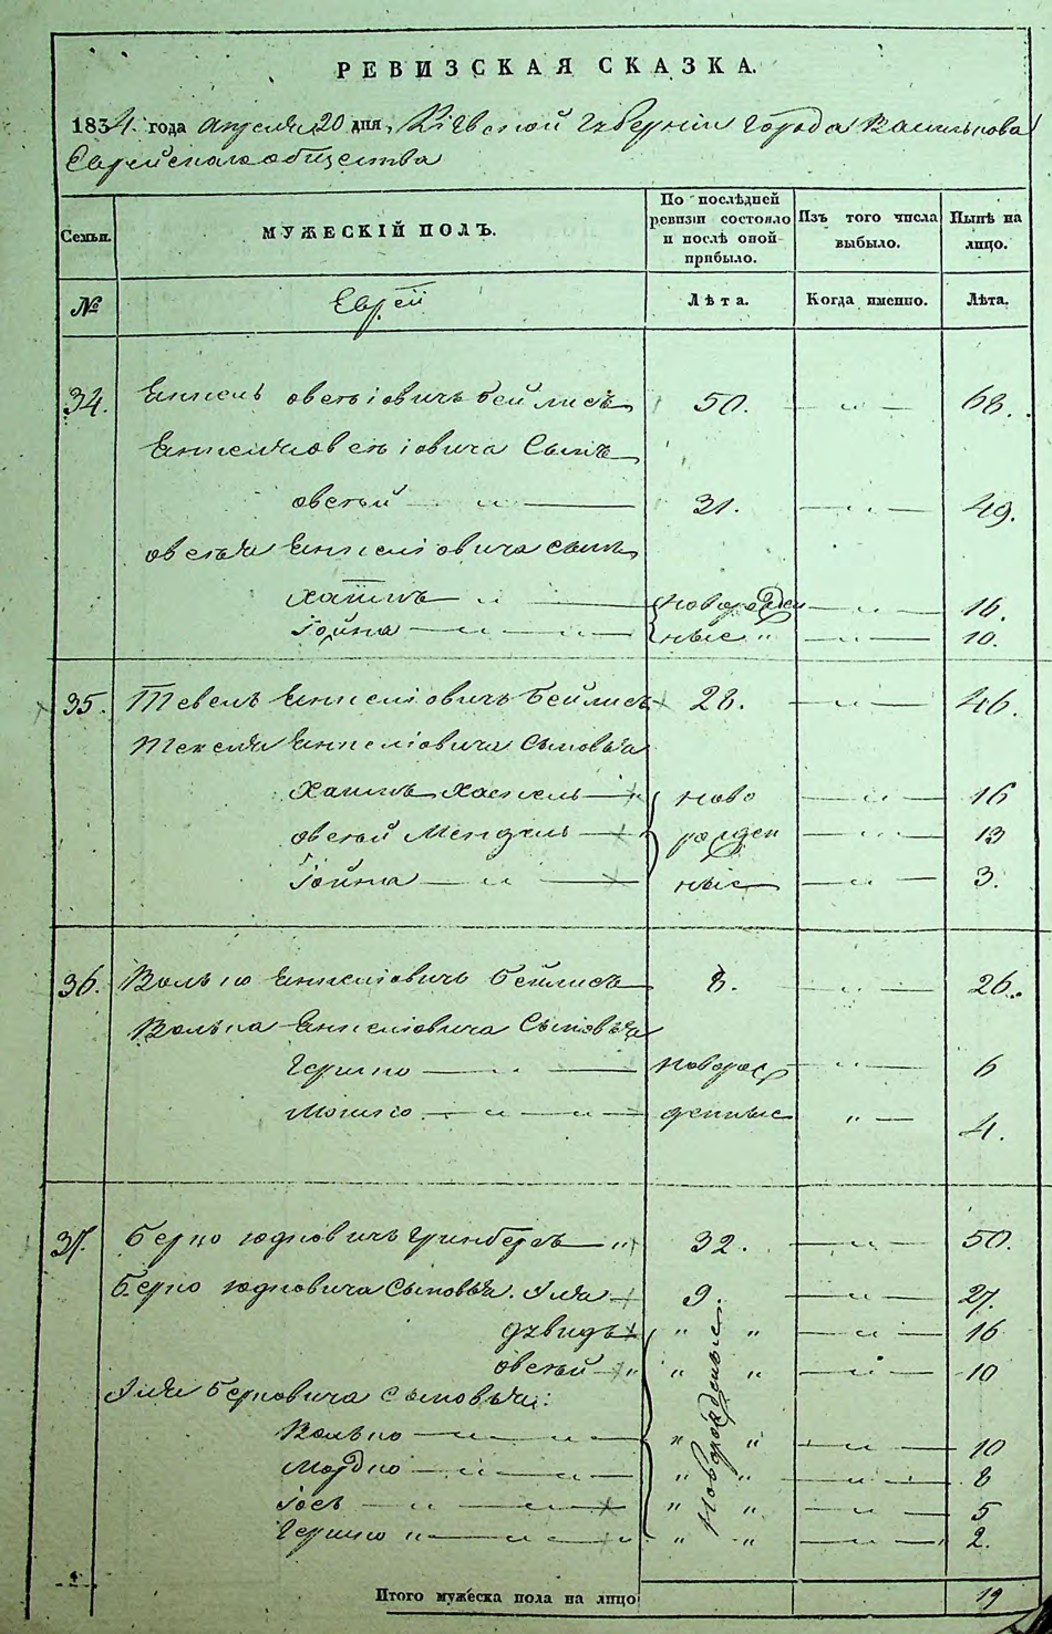 РЕВИЗСКАЯ СКАЗКА.
1834. года апреля 20 дня, Кіевской губерніи города Василькова
Еврейскаго общества
Семьи.
МУЖЕСКІЙ ПОЛЪ.
По послѣдней ревизіи состояло и послѣ оной прибыло.
Изъ того числа выбыло.
Нынѣ на лицо.
№
Евреи
Лѣта.
Когда именно.
Лѣта.
34. овсеіовичъ Бейлисъ 50. — „ — 68.
овсеіовича Сынъ
овсей — „ — 31. — „ — 49.
овсея сынъ
Хаимъ „ — новорожден — „ — 16.
Гойна — „ — „ — ные „ — „ — 10.
35. Тевель Бейлисъ 28. — „ — 46.
Сыновья
Хаимъ Хаскель — ново — „ — 16
овсей Мендель — рожден — „ — 13
Гойна — „ — ные — „ — 3.
36. Волько Бейлисъ 8. — „ — 26.
Волька Сыновья
Гершко — „ — новорож — „ — 6
Мошко — „ — „ — денные „ — 4.
37. Берко Юдковичъ Гринбергъ — „ 32. — „ — 50.
Берко Юдковича Сыновья. Иля — 9. — „ — 27.
Дувидъ „ „ — „ — 16
овсей — „ „ „ — „ — 10
Или Берковича сыновья:
Новорожденные
Волько — „ — „ — „ „ — „ — 10
Мордко — „ — „ — „ „ — „ — 8
Іосъ — „ — „ — „ „ — „ — 5
Гершко „ — „ — „ „ — „ — 2.
Итого мужеска пола на лицо 19